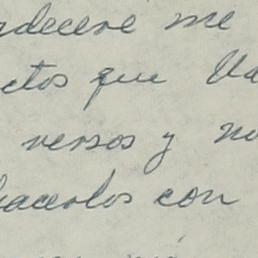 adecere me
ctos que Ud
versos y no
hacerlos con